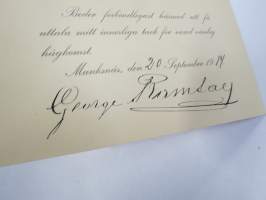 Beder förbindligast härmed att få
uttala mitt innerliga tack för visad vänlig
hågkomst.
Munksnäs, den 20 September 1914
George Ramsay